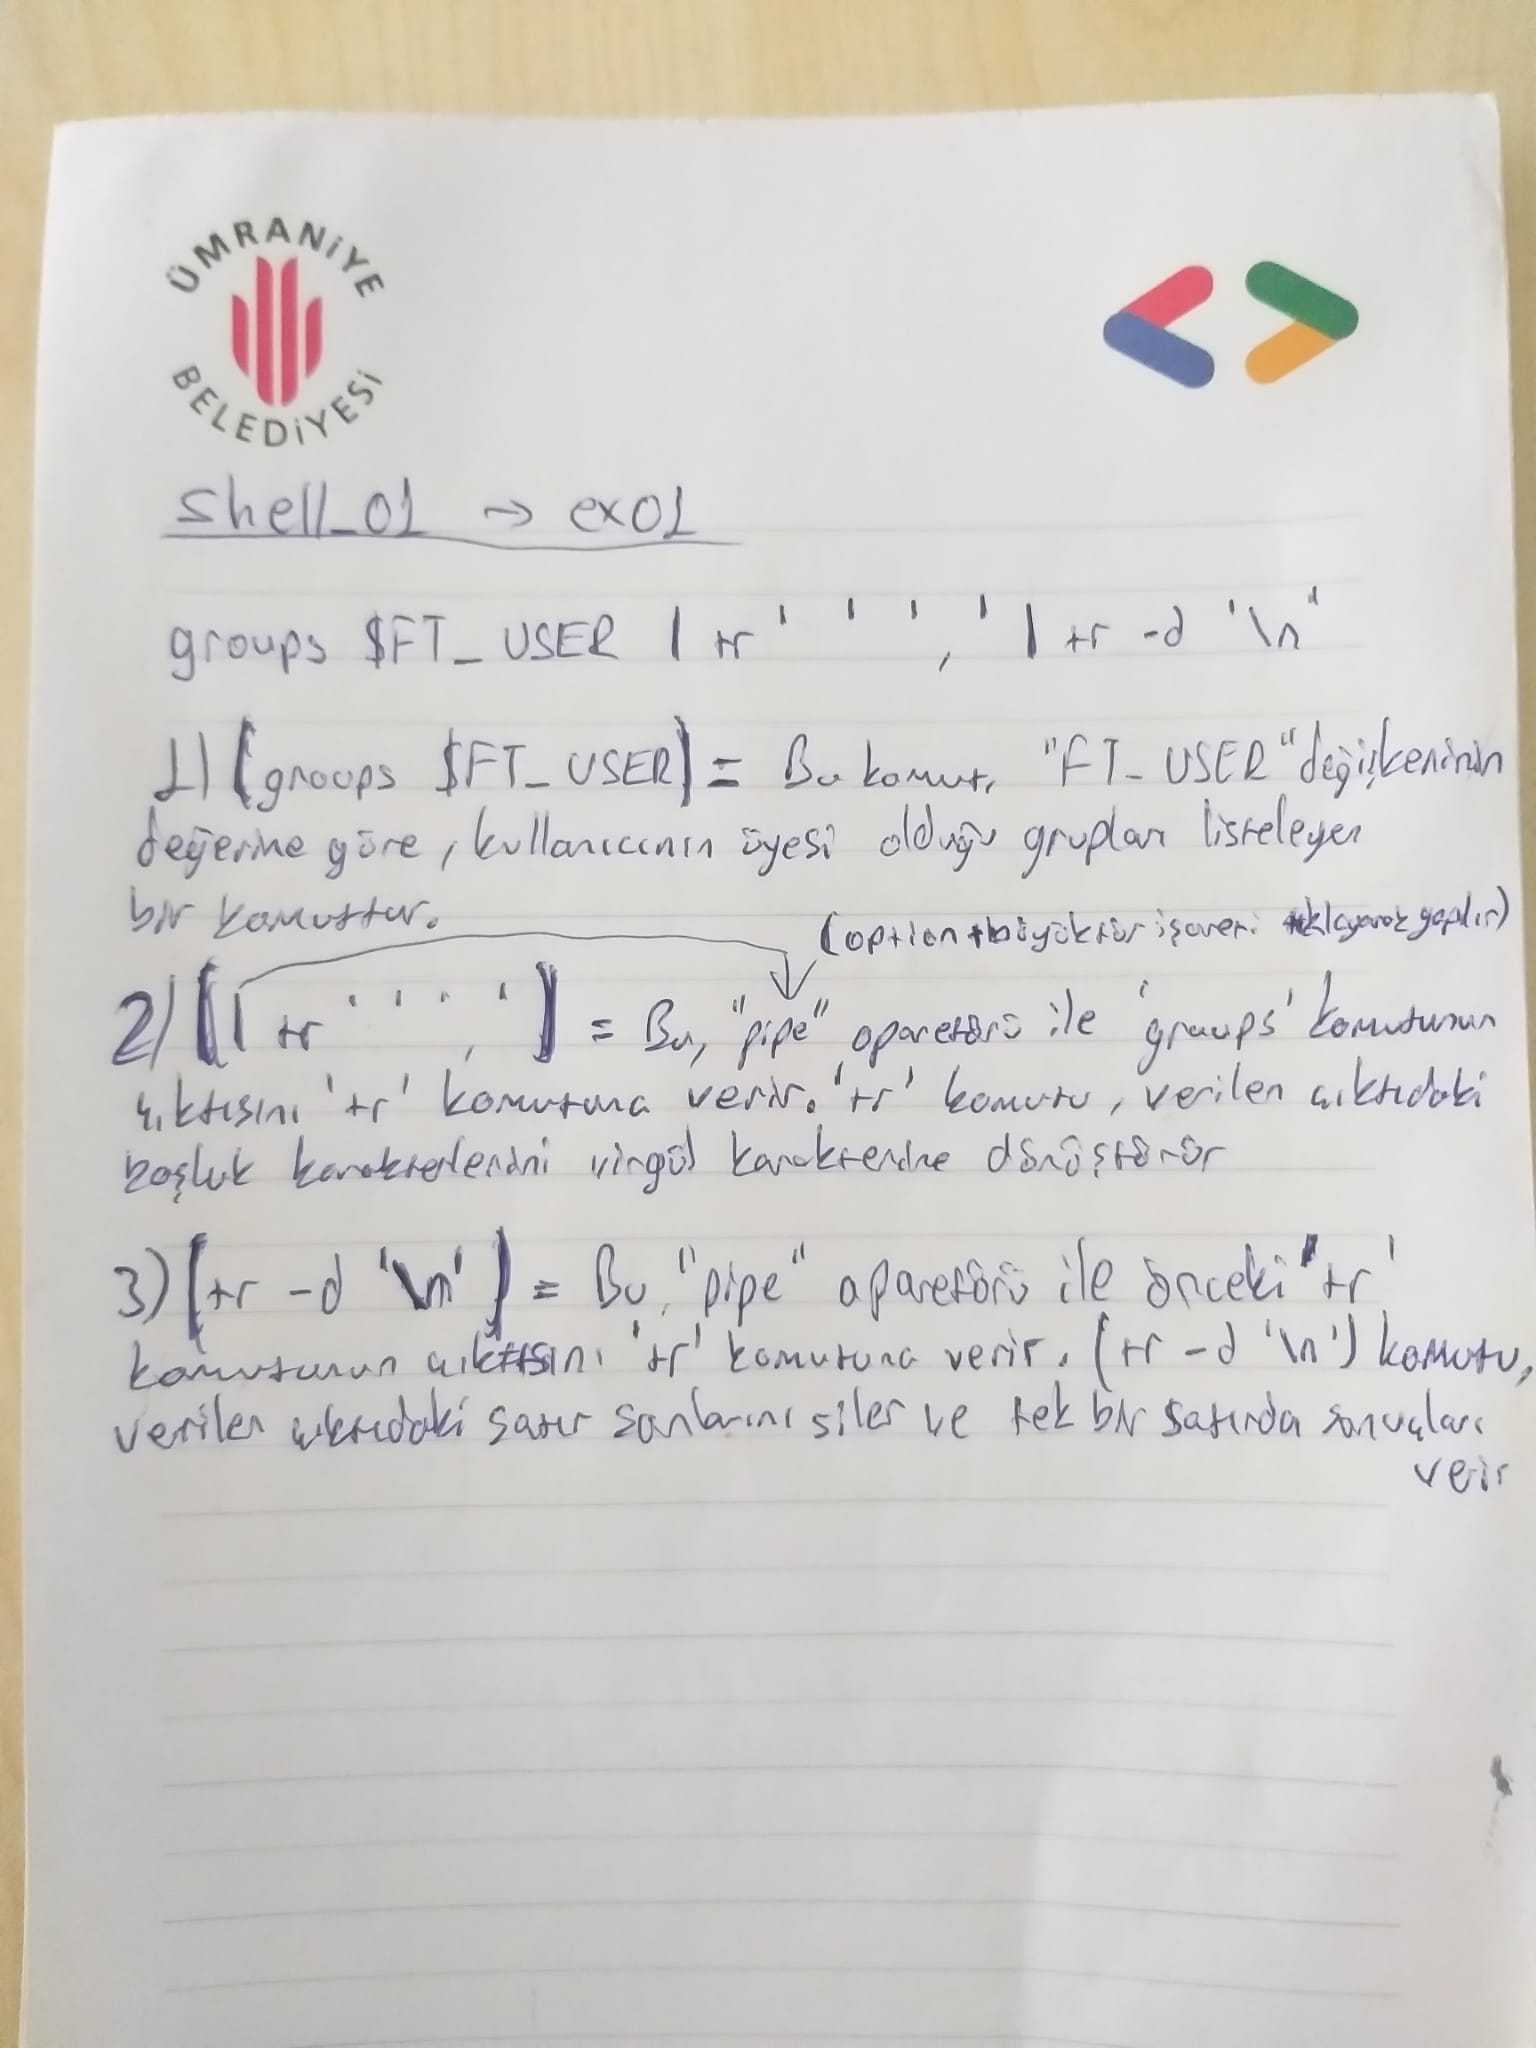 ÜMRANİYE
BELEDİYESİ
shell_01 → ex01
groups $FT_USER | tr ' ' ',' | tr -d '\n'
1) (groups $FT_USER) = Bu komut, "FT_USER" değişkeninin
değerine göre, kullanıcının üyesi olduğu grupları listeleyen
bir komuttur.
(option + büyüktür işareti tıklayarak yapılır)
2) (| tr ' ' ',') = Bu, "pipe" oparetörü ile 'groups' komutunun
çıktısını 'tr' komutuna verir. 'tr' komutu, verilen çıktıdaki
boşluk karakterlerini virgül karakterine dönüştürür
3) (tr -d '\n') = Bu, "pipe" oparetörü ile önceki 'tr'
komutunun çıktısını 'tr' komutuna verir. (tr -d '\n') komutu,
verilen çıktıdaki satır sonlarını siler ve tek bir satırda sonuçları
verir